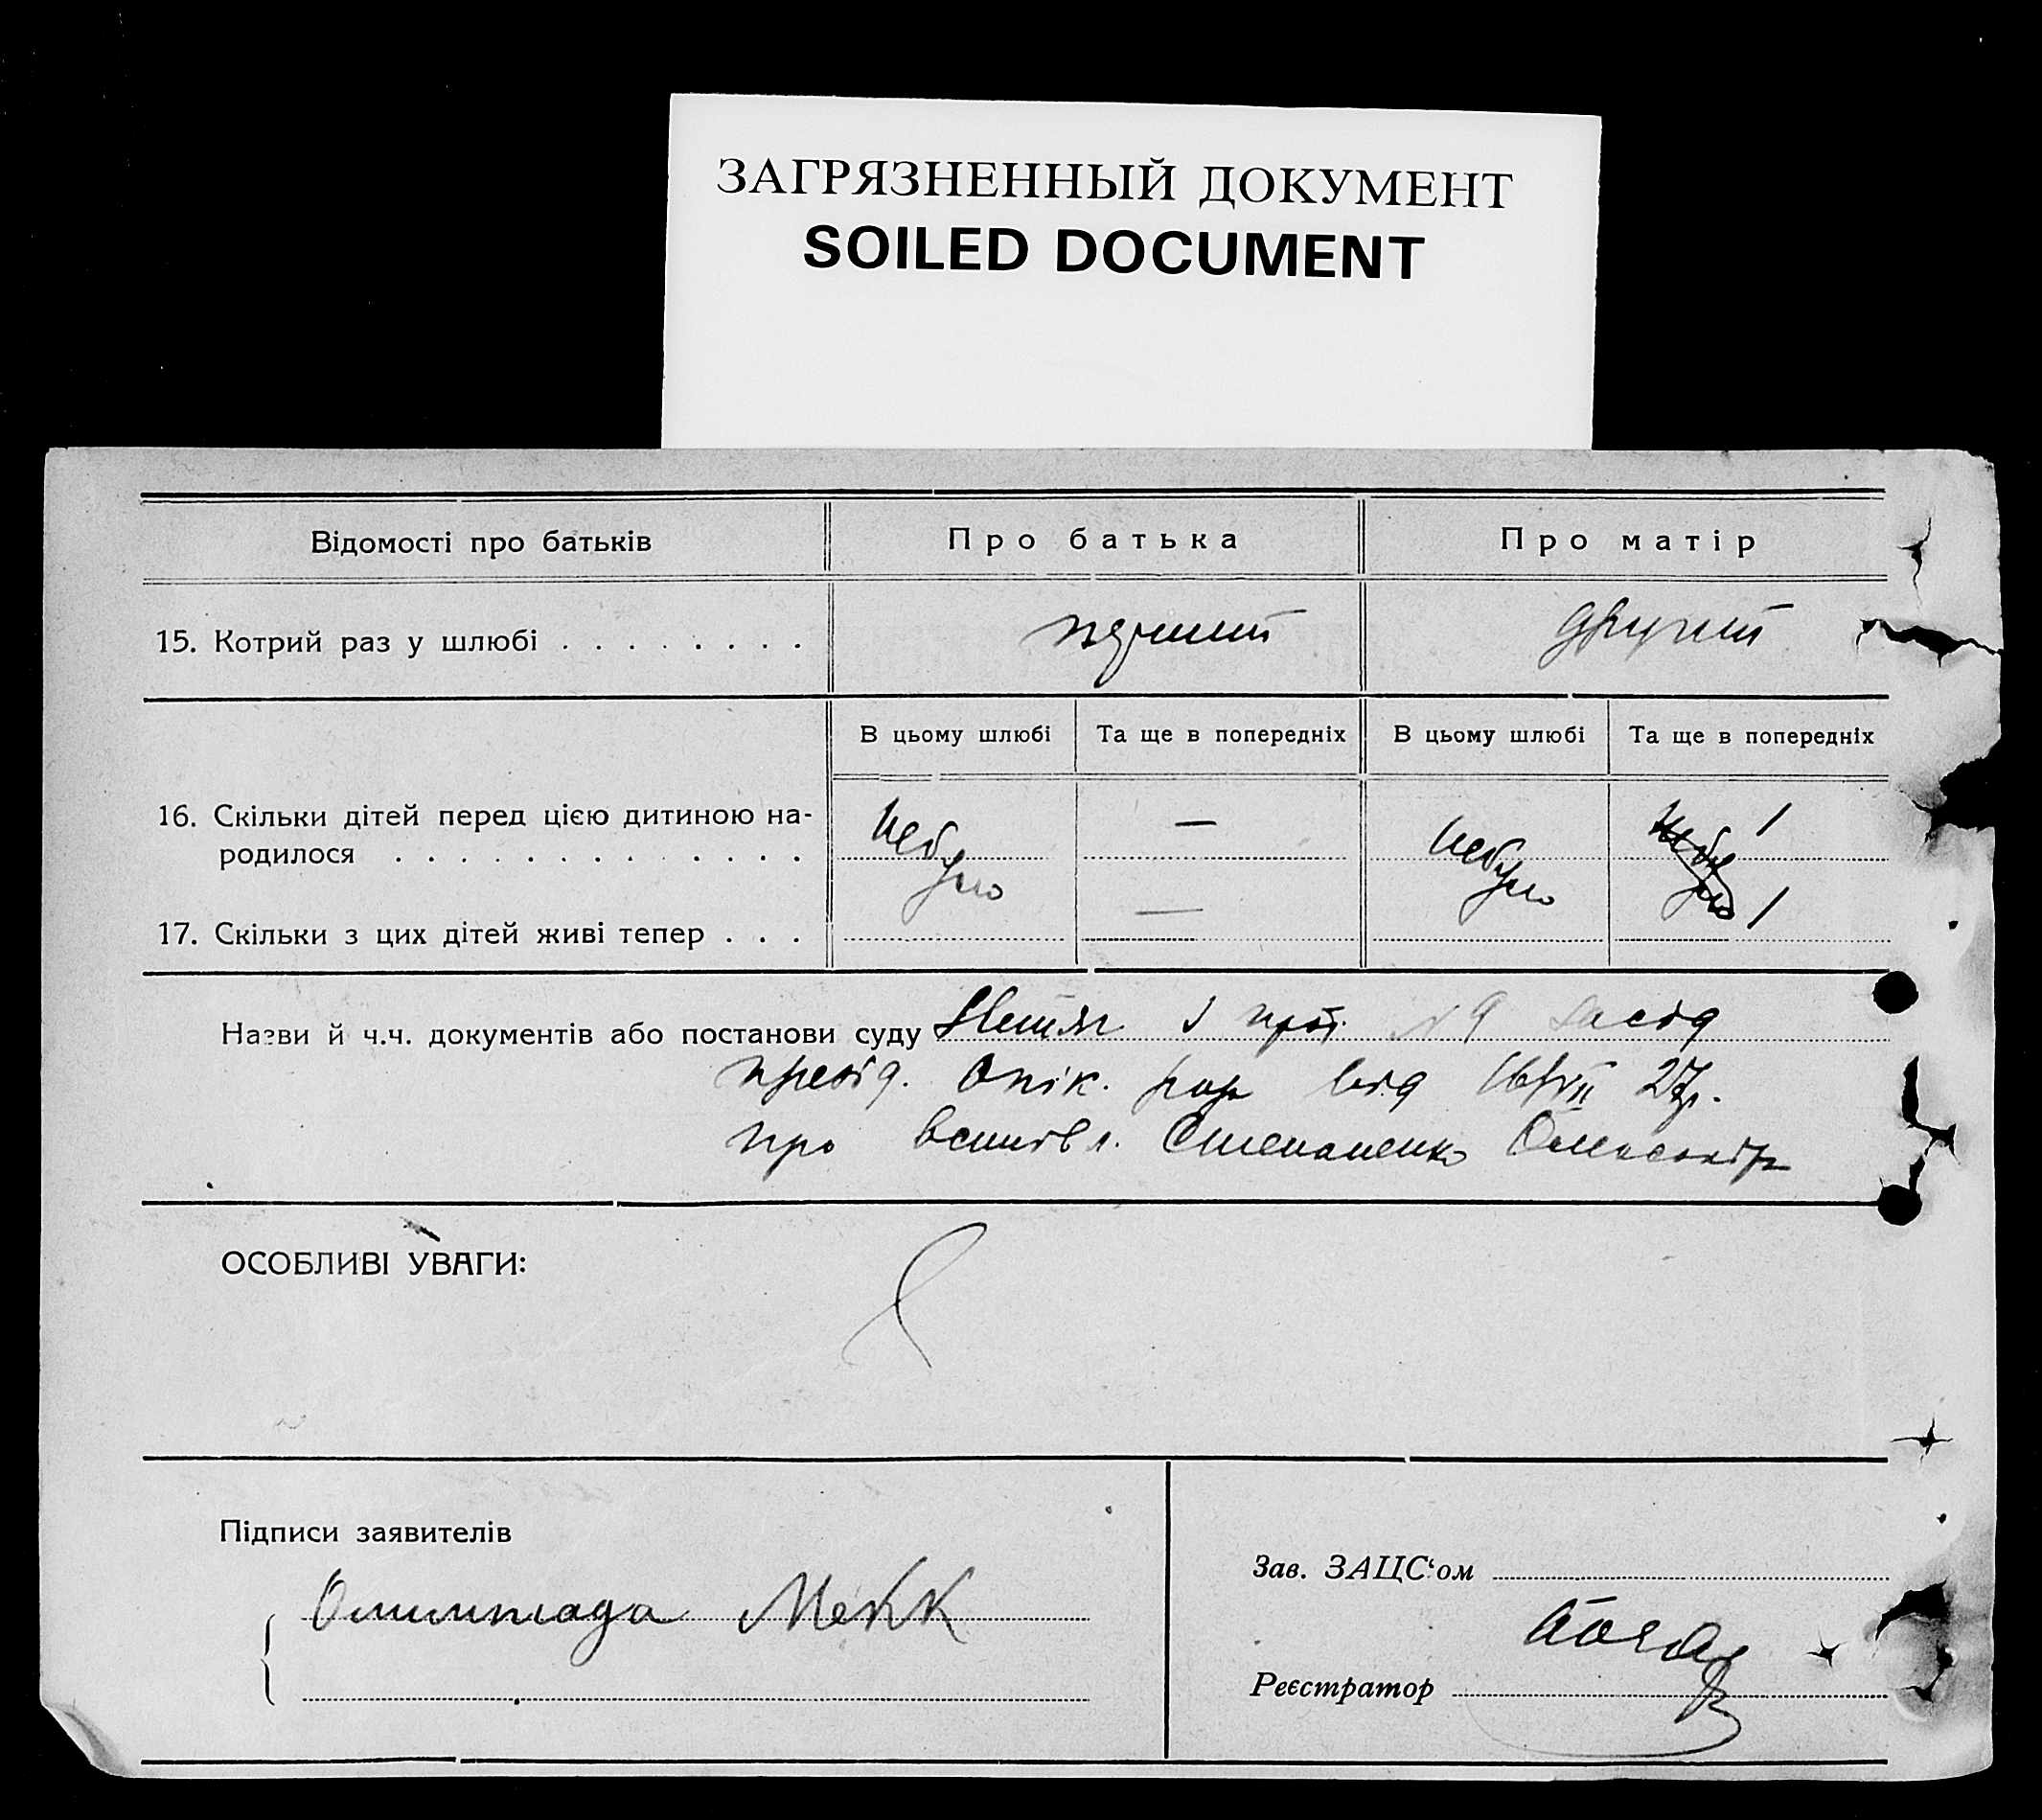 ЗАГРЯЗНЕННЫЙ ДОКУМЕНТ
SOILED DOCUMENT
Відомості про батьків
Про батька
Про матір
15. Котрий раз у шлюбі . . . . . . . .
перший
другий
В цьому шлюбі
Та ще в попередніх
В цьому шлюбі
Та ще в попередніх
16. Скільки дітей перед цією дитиною на-
родилося . . . . . . . . . . . . .
небуло
—
небуло
небуло 1
17. Скільки з цих дітей живі тепер . . .
—
1
Назви й ч.ч. документів або постанови суду Витяг з прот. N 9 засід
презід. Опік. рад від 16/VII 27р.
про встановл. Степаненко Олександр
ОСОБЛИВІ УВАГИ:
Підписи заявителів
Олимпиада Мекк
Зав. ЗАЦС‘ом
Реєстратор